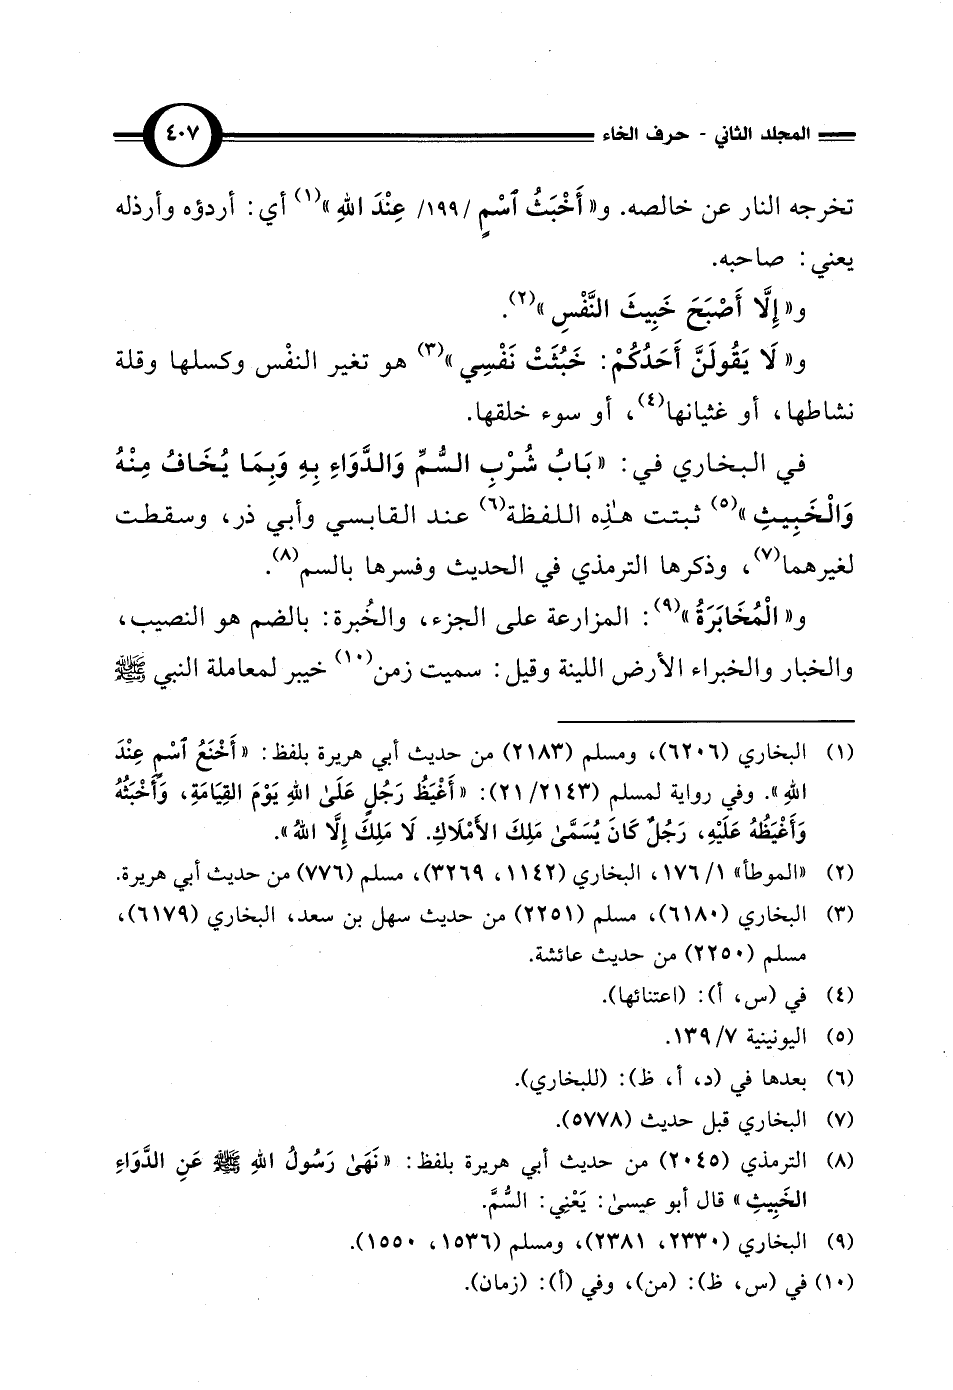 المجلد الثاني - حرف الخاء ٤٠٧
تخرجه النار عن خالصه. و« أَخْبَثُ ٱسْمٍ /١٩٩/ عِنْدَ اللهِ »(١) أي: أردؤه وأرذله
يعني: صاحبه.
و« إِلَّا أَصْبَحَ خَبِيثَ النَّفْسِ »(٢).
و« لَا يَقُولَنَّ أَحَدُكُمْ: خَبُثَتْ نَفْسِي »(٣) هو تغير النفْس وكسلها وقلة
نشاطها، أو غثيانها(٤)، أو سوء خلقها.
في البخاري في: « بَابُ شُرْبِ السُّمِّ وَالدَّوَاءِ بِهِ وَبِمَا يُخَافُ مِنْهُ
وَالْخَبِيثِ »(٥) ثبتت هٰذِه اللفظة(٦) عند القابسي وأبي ذر، وسقطت
لغيرهما(٧)، وذكرها الترمذي في الحديث وفسرها بالسم(٨).
و« الْمُخَابَرَةُ »(٩): المزارعة على الجزء، والخُبرة: بالضم هو النصيب،
والخبار والخبراء الأرض اللينة وقيل: سميت زمن(١٠) خيبر لمعاملة النبي ﷺ
(١) البخاري (٦٢٠٦)، ومسلم (٢١٨٣) من حديث أبي هريرة بلفظ: « أَخْنَعُ ٱسْمٍ عِنْدَ
اللهِ ». وفي رواية لمسلم (٢١/٢١٤٣): « أَغْيَظُ رَجُلٍ عَلَىٰ اللهِ يَوْمَ القِيَامَةِ، وَأَخْبَثُهُ
وَأَغْيَظُهُ عَلَيْهِ، رَجُلٌ كَانَ يُسَمَّىٰ مَلِكَ الأَمْلَاكِ. لَا مَلِكَ إِلَّا اللهُ ».
(٢) «الموطأ» ١/ ١٧٦، البخاري (١١٤٢، ٣٢٦٩)، مسلم (٧٧٦) من حديث أبي هريرة.
(٣) البخاري (٦١٨٠)، مسلم (٢٢٥١) من حديث سهل بن سعد، البخاري (٦١٧٩)،
مسلم (٢٢٥٠) من حديث عائشة.
(٤) في (س، أ): (اعتنائها).
(٥) اليونينية ٧/ ١٣٩.
(٦) بعدها في (د، أ، ظ): (للبخاري).
(٧) البخاري قبل حديث (٥٧٧٨).
(٨) الترمذي (٢٠٤٥) من حديث أبي هريرة بلفظ: « نَهَىٰ رَسُولُ اللهِ ﷺ عَنِ الدَّوَاءِ
الخَبِيثِ » قال أبو عيسىٰ: يَعْنِي: السُّمَّ.
(٩) البخاري (٢٣٣٠، ٢٣٨١)، ومسلم (١٥٣٦، ١٥٥٠).
(١٠) في (س، ظ): (من)، وفي (أ): (زمان).